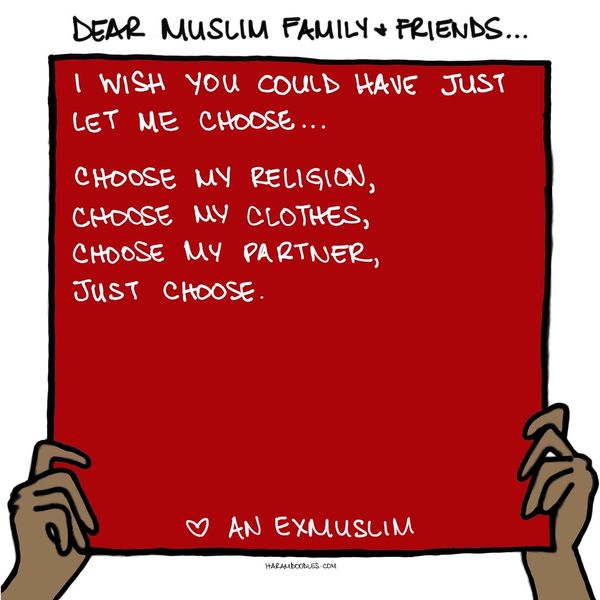 DEAR MUSLIM FAMILY & FRIENDS...
I WISH YOU COULD HAVE JUST
LET ME CHOOSE...
CHOOSE MY RELIGION,
CHOOSE MY CLOTHES,
CHOOSE MY PARTNER,
JUST CHOOSE.
♡ AN EXMUSLIM
HARAMDOODLES.COM